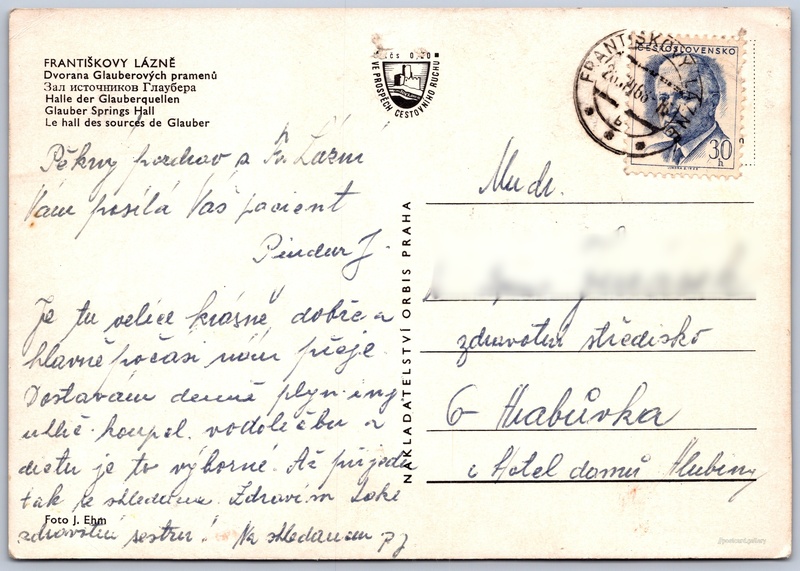 FRANTIŠKOVY LÁZNĚ
Dvorana Glauberových pramenů
Зал источников Глаубера
Halle der Glauberquellen
Glauber Springs Hall
Le hall des sources de Glauber
Kčs 0,30
VE PROSPĚCH CESTOVNÍHO RUCHU
FRANTIŠKOVY LÁZNĚ
ČESKOSLOVENSKO
30 h
Pěkný pozdrav z Fr. Lázní
Vám posílá Váš pacient
Pindur J.
Je tu velice krásně dobře a
hlavně počasí nám přeje.
Dostávám denně plyn. inj.
uhlič. koupel. vodoléčbu a
dietu je to výborné. Až přijedu
tak se shledáme. Zdravím také
zdravotní sestru! Na shledanou
Foto J. Ehm
NAKLADATELSTVÍ ORBIS PRAHA
Mudr.
zdravotní středisko
6 - Hrabůvka
u Hotel domů Hlubiny